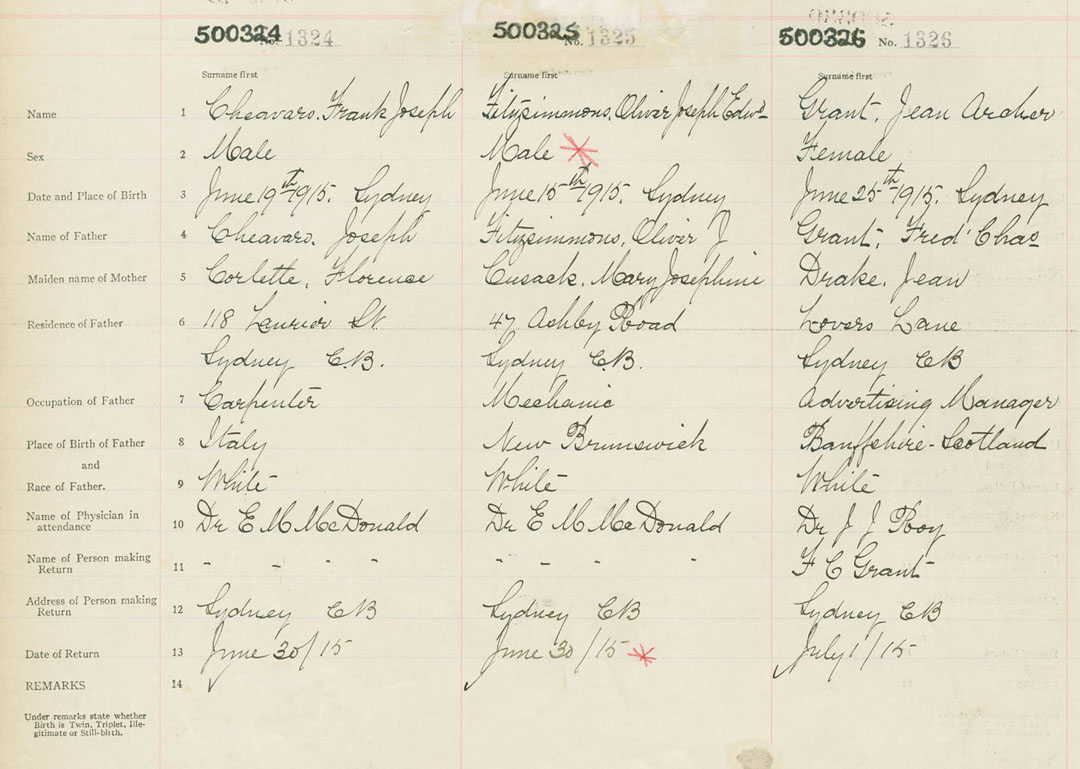 500324 No. 1324 500325 No. 1325 500326 No. 1326
Surname first Surname first Surname first
Name 1 Cheavaro. Frank Joseph Fitzsimmons. Oliver Joseph Edwd Grant, Jean Archer
Sex 2 Male Male Female
Date and Place of Birth 3 June 19th 1915. Sydney June 15th 1915. Sydney June 25th 1915. Sydney
Name of Father 4 Cheavaro. Joseph Fitzsimmons, Oliver J Grant, Fred' Chas
Maiden name of Mother 5 Corlette, Florence Cusack. Mary Josephine Drake. Jean
Residence of Father 6 118 Laurier St. 47 Ashby Road Lovers Lane
Sydney C.B. Sydney C.B. Sydney CB
Occupation of Father 7 Carpenter Mechanic Advertising Manager
Place of Birth of Father 8 Italy New Brunswick Banffshire - Scotland
and
Race of Father. 9 White White White
Name of Physician in attendance 10 Dr E M McDonald Dr E M McDonald Dr J J Roy
Name of Person making Return 11 " " " " " " " " F C Grant
Address of Person making Return 12 Sydney CB Sydney CB Sydney CB
Date of Return 13 June 30/15 June 30/15 July 1/15
REMARKS 14
Under remarks state whether
Birth is Twin, Triplet, Ille-
gitimate or Still-birth.